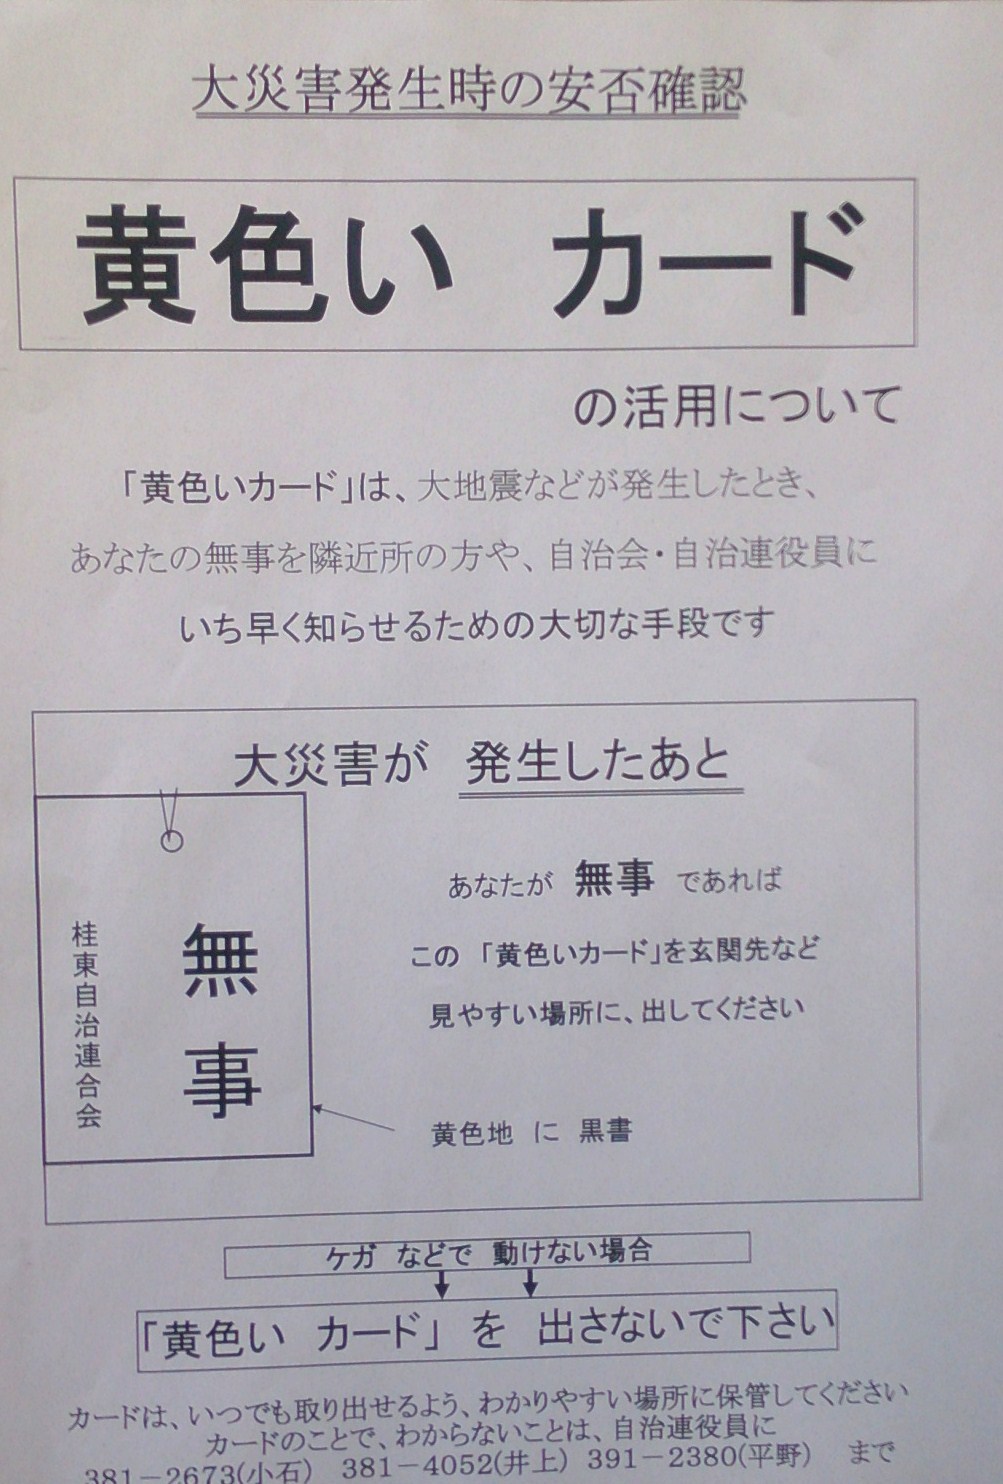 大災害発生時の安否確認
黄色い カード
の活用について
「黄色いカード」は、大地震などが発生したとき、
あなたの無事を隣近所の方や、自治会・自治連役員に
いち早く知らせるための大切な手段です
大災害が 発生したあと
無事
桂東自治連合会
あなたが 無事 であれば
この 「黄色いカード」を玄関先など
見やすい場所に、出してください
黄色地 に 黒書
ケガ などで 動けない場合
「黄色い カード」 を 出さないで下さい
カードは、いつでも取り出せるよう、わかりやすい場所に保管してください
カードのことで、わからないことは、自治連役員に
381－2673(小石) 381－4052(井上) 391－2380(平野) まで